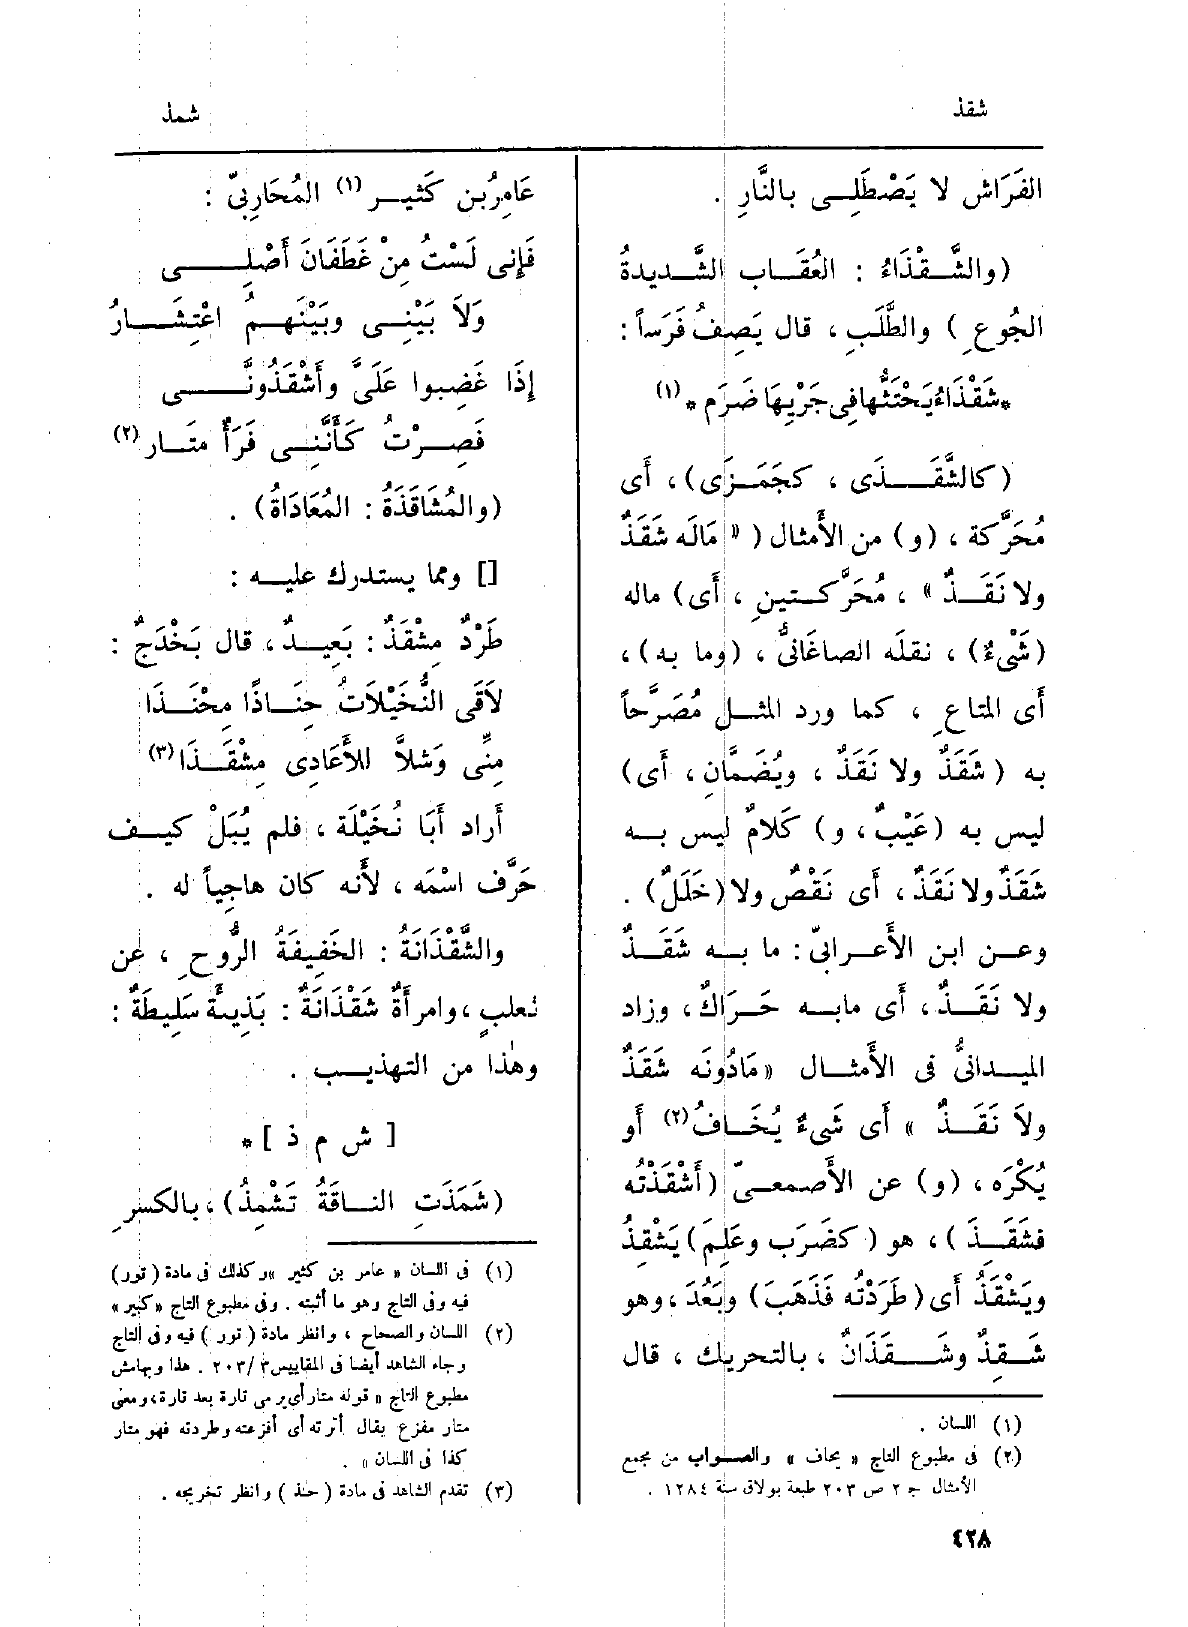 شقذ
شمذ
الفَرَاش لا يَصْطَلِى بالنَّارِ .
(والشَّقْذَاءُ : العُقَاب الشَّدِيدةُ
الجُوعِ ) والطَّلَبِ ، قال يَصِفُ فَرَساً :
*شَقْذَاءُ يَحْتَثُّها فى جَرْيِها ضَرَم * (١)
(كالشَّقَذَى ، كجَمَزَى)، أَى
مُحَرَّكة ، (و) من الأَمثال ( « مَالَه شَقَذٌ
ولا نَقَذٌ » ، مُحَرَّكتينِ ، أَى) ماله
(شَىْءٌ) ، نقلَه الصاغانىُّ ، (وما به)،
أَى المتاعِ ، كما ورد المثل مُصَرَّحاً
به ( شَقَذٌ ولا نَقَذٌ ، ويُضَمَّانِ ، أَى)
ليس به (عَيْبٌ، و) كَلامٌ ليس به
شَقَذٌ ولا نَقَذٌ، أَى نَقْصٌ ولا (خَلَلٌ) .
وعن ابن الأَعرابىّ : ما به شَقَذٌ
ولا نَقَذٌ، أَى مابه حَرَاكٌ، وزاد
الميدانىُّ فى الأَمثال «مَادُونَه شَقَذٌ
ولَا نَقَذٌ » أَى شَىءٌ يُخَافُ (٢) أَو
يُكْرَه ، (و) عن الأَصمعىّ (أَشْقَذْتُه
فشَقَذَ )، هو ( كضَرَب وعَلِمَ) يَشْقِذُ
ويَشْقَذُ أَى (طَرَدْتُه فَذَهَبَ) وبَعُدَ ، وهو
شَقِذٌ وشَقَذَانٌ ، بالتحريك ، قال
(١) اللسان .
(٢) فى مطبوع التاج « يحاف » والصواب من مجمع
الأمثال ج ٢ ص ٢٠٣ طبعة بولاق سنة ١٢٨٤ .
عَامِرُ بن كَثيِر (١) المُحَارِبىّ :
فَإِنى لَسْتُ مِنْ غَطَفَانَ أَصْلِى
وَلاَ بَيْنِى وبَيْنَهمُ اعْتِشَارُ
إِذَا غَضِبوا عَلَىَّ وأَشْقَذُونَى
فَصِرْتُ كَأَنَّنِى فَرَأٌ مُتَار (٢)
(والمُشَاقَذَةُ : المُعَادَاةُ) .
[] ومما يستدرك عليه :
طَرْدٌ مِشْقَذٌ : بَعِيدٌ، قال بَخْدَجٌ :
لاَقَى النُّخَيْلاَتُ حِنَاذًا مِحْنَذَا
مِنِّى وَشَلاًّ للأَعَادِى مِشْقَذَا (٣)
أَراد أَبَا نُخَيْلَة ، فلم يُبَلْ كيف
حَرَّف اسْمَه ، لأَنه كان هاجِياً له .
والشَّقْذَانَةُ : الخَفِيفَةُ الرُّوحِ ، عن
ثعلبٍ ، وامرأَةٌ شَقْذَانَةٌ : بَذِيئَةٌ سَلِيطَةٌ :
وهٰذا من التهذيب .
[ ش م ذ ] *
(شَمَذَتِ الناقَةُ تَشْمِذُ) ، بالكسرِ
(١) فى اللسان « عامر بن كثير » وكذلك فى مادة ( تور)
فيه وفى التاج وهو ما أثبته . وفى مطبوع التاج «كبير»
(٢) اللسان والصحاح ، وانظر مادة ( تور ) فيه وفى التاج
وجاء الشاهد أيضا فى المقاييس ٣ /٢٠٣ . هذا وبهامش
مطبوع التاج « قوله متار أى يرمى تارة بعد تارة ، ومعنى
متار مفزع يقال أترته أى أفزعته وطردته فهو متار
كذا فى اللسان » .
(٣) تقدم الشاهد فى مادة ( حنذ ) وانظر تخريجه .
٤٢٨